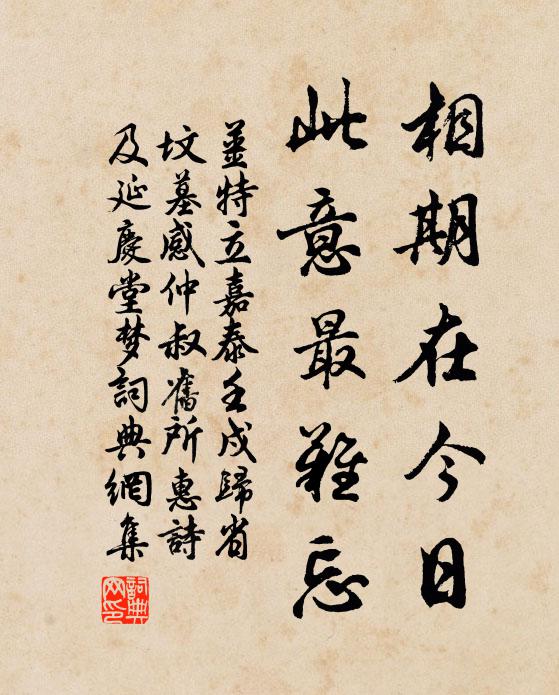 相期在今日
此意最難忘
姜特立嘉泰壬戌歸省
坟墓感仲叔舊所惠詩
及延慶堂梦詞典網集
詞典网印